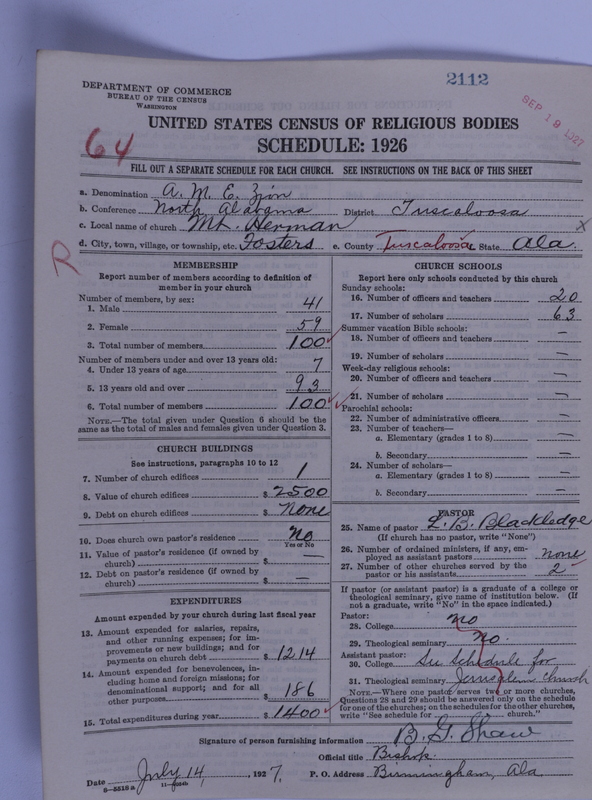 2112
SEP 19 1927
DEPARTMENT OF COMMERCE
BUREAU OF THE CENSUS
WASHINGTON
UNITED STATES CENSUS OF RELIGIOUS BODIES
64
SCHEDULE: 1926
FILL OUT A SEPARATE SCHEDULE FOR EACH CHURCH. SEE INSTRUCTIONS ON THE BACK OF THIS SHEET
a. Denomination A. M. E. Zion
b. Conference North Alabama District Tuscaloosa
c. Local name of church Mt. Herman X
d. City, town, village, or township, etc. Fosters e. County Tuscaloosa State Ala.
R
MEMBERSHIP
Report number of members according to definition of
member in your church
Number of members, by sex:
1. Male 41
2. Female 59
3. Total number of members 100
Number of members under and over 13 years old:
4. Under 13 years of age 7
5. 13 years old and over 93
6. Total number of members 100
NOTE.—The total given under Question 6 should be the
same as the total of males and females given under Question 3.
CHURCH BUILDINGS
See instructions, paragraphs 10 to 12
7. Number of church edifices 1
8. Value of church edifices $ 2500
9. Debt on church edifices $ None
10. Does church own pastor's residence? No
Yes or No
11. Value of pastor's residence (if owned by
church) $ —
12. Debt on pastor's residence (if owned by
church) $ —
EXPENDITURES
Amount expended by your church during last fiscal year
13. Amount expended for salaries, repairs,
and other running expenses; for im-
provements or new buildings; and for
payments on church debt $ 1214
14. Amount expended for benevolences, in-
cluding home and foreign missions; for
denominational support; and for all
other purposes $ 186
15. Total expenditures during year $ 1400
CHURCH SCHOOLS
Report here only schools conducted by this church
Sunday schools:
16. Number of officers and teachers 20
17. Number of scholars 63
Summer vacation Bible schools:
18. Number of officers and teachers —
19. Number of scholars —
Week-day religious schools:
20. Number of officers and teachers —
21. Number of scholars —
Parochial schools:
22. Number of administrative officers —
23. Number of teachers—
a. Elementary (grades 1 to 8) —
b. Secondary —
24. Number of scholars—
a. Elementary (grades 1 to 8) —
b. Secondary —
PASTOR
25. Name of pastor L. B. Blackledge
(If church has no pastor, write "None")
26. Number of ordained ministers, if any, em-
ployed as assistant pastors none
27. Number of other churches served by the
pastor or his assistants 2
If pastor (or assistant pastor) is a graduate of a college or
theological seminary, give name of institution below. (If
not a graduate, write "No" in the space indicated.)
Pastor:
28. College no
29. Theological seminary no.
Assistant pastor:
30. College See Schedule for
31. Theological seminary Jerusalem church
NOTE.—Where one pastor serves two or more churches,
Questions 28 and 29 should be answered only on the schedule
for one of the churches; on the schedules for the other churches,
write "See schedule for church."
Signature of person furnishing information B. G. Shaw
Official title Bishop
Date July 14, 1927. P. O. Address Birmingham, Ala.